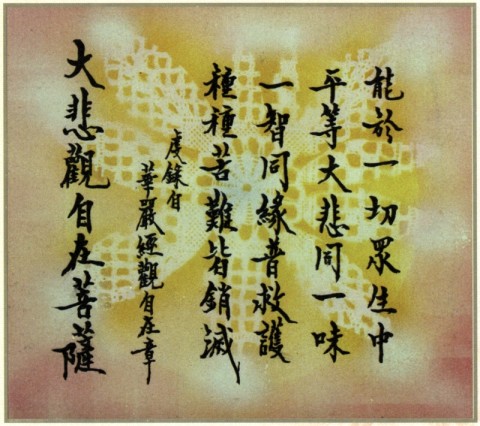 能於一切眾生中
平等大悲同一味
一智同緣普救護
種種苦難皆銷滅
虔錄自
華嚴經觀自在章
大悲觀自在菩薩